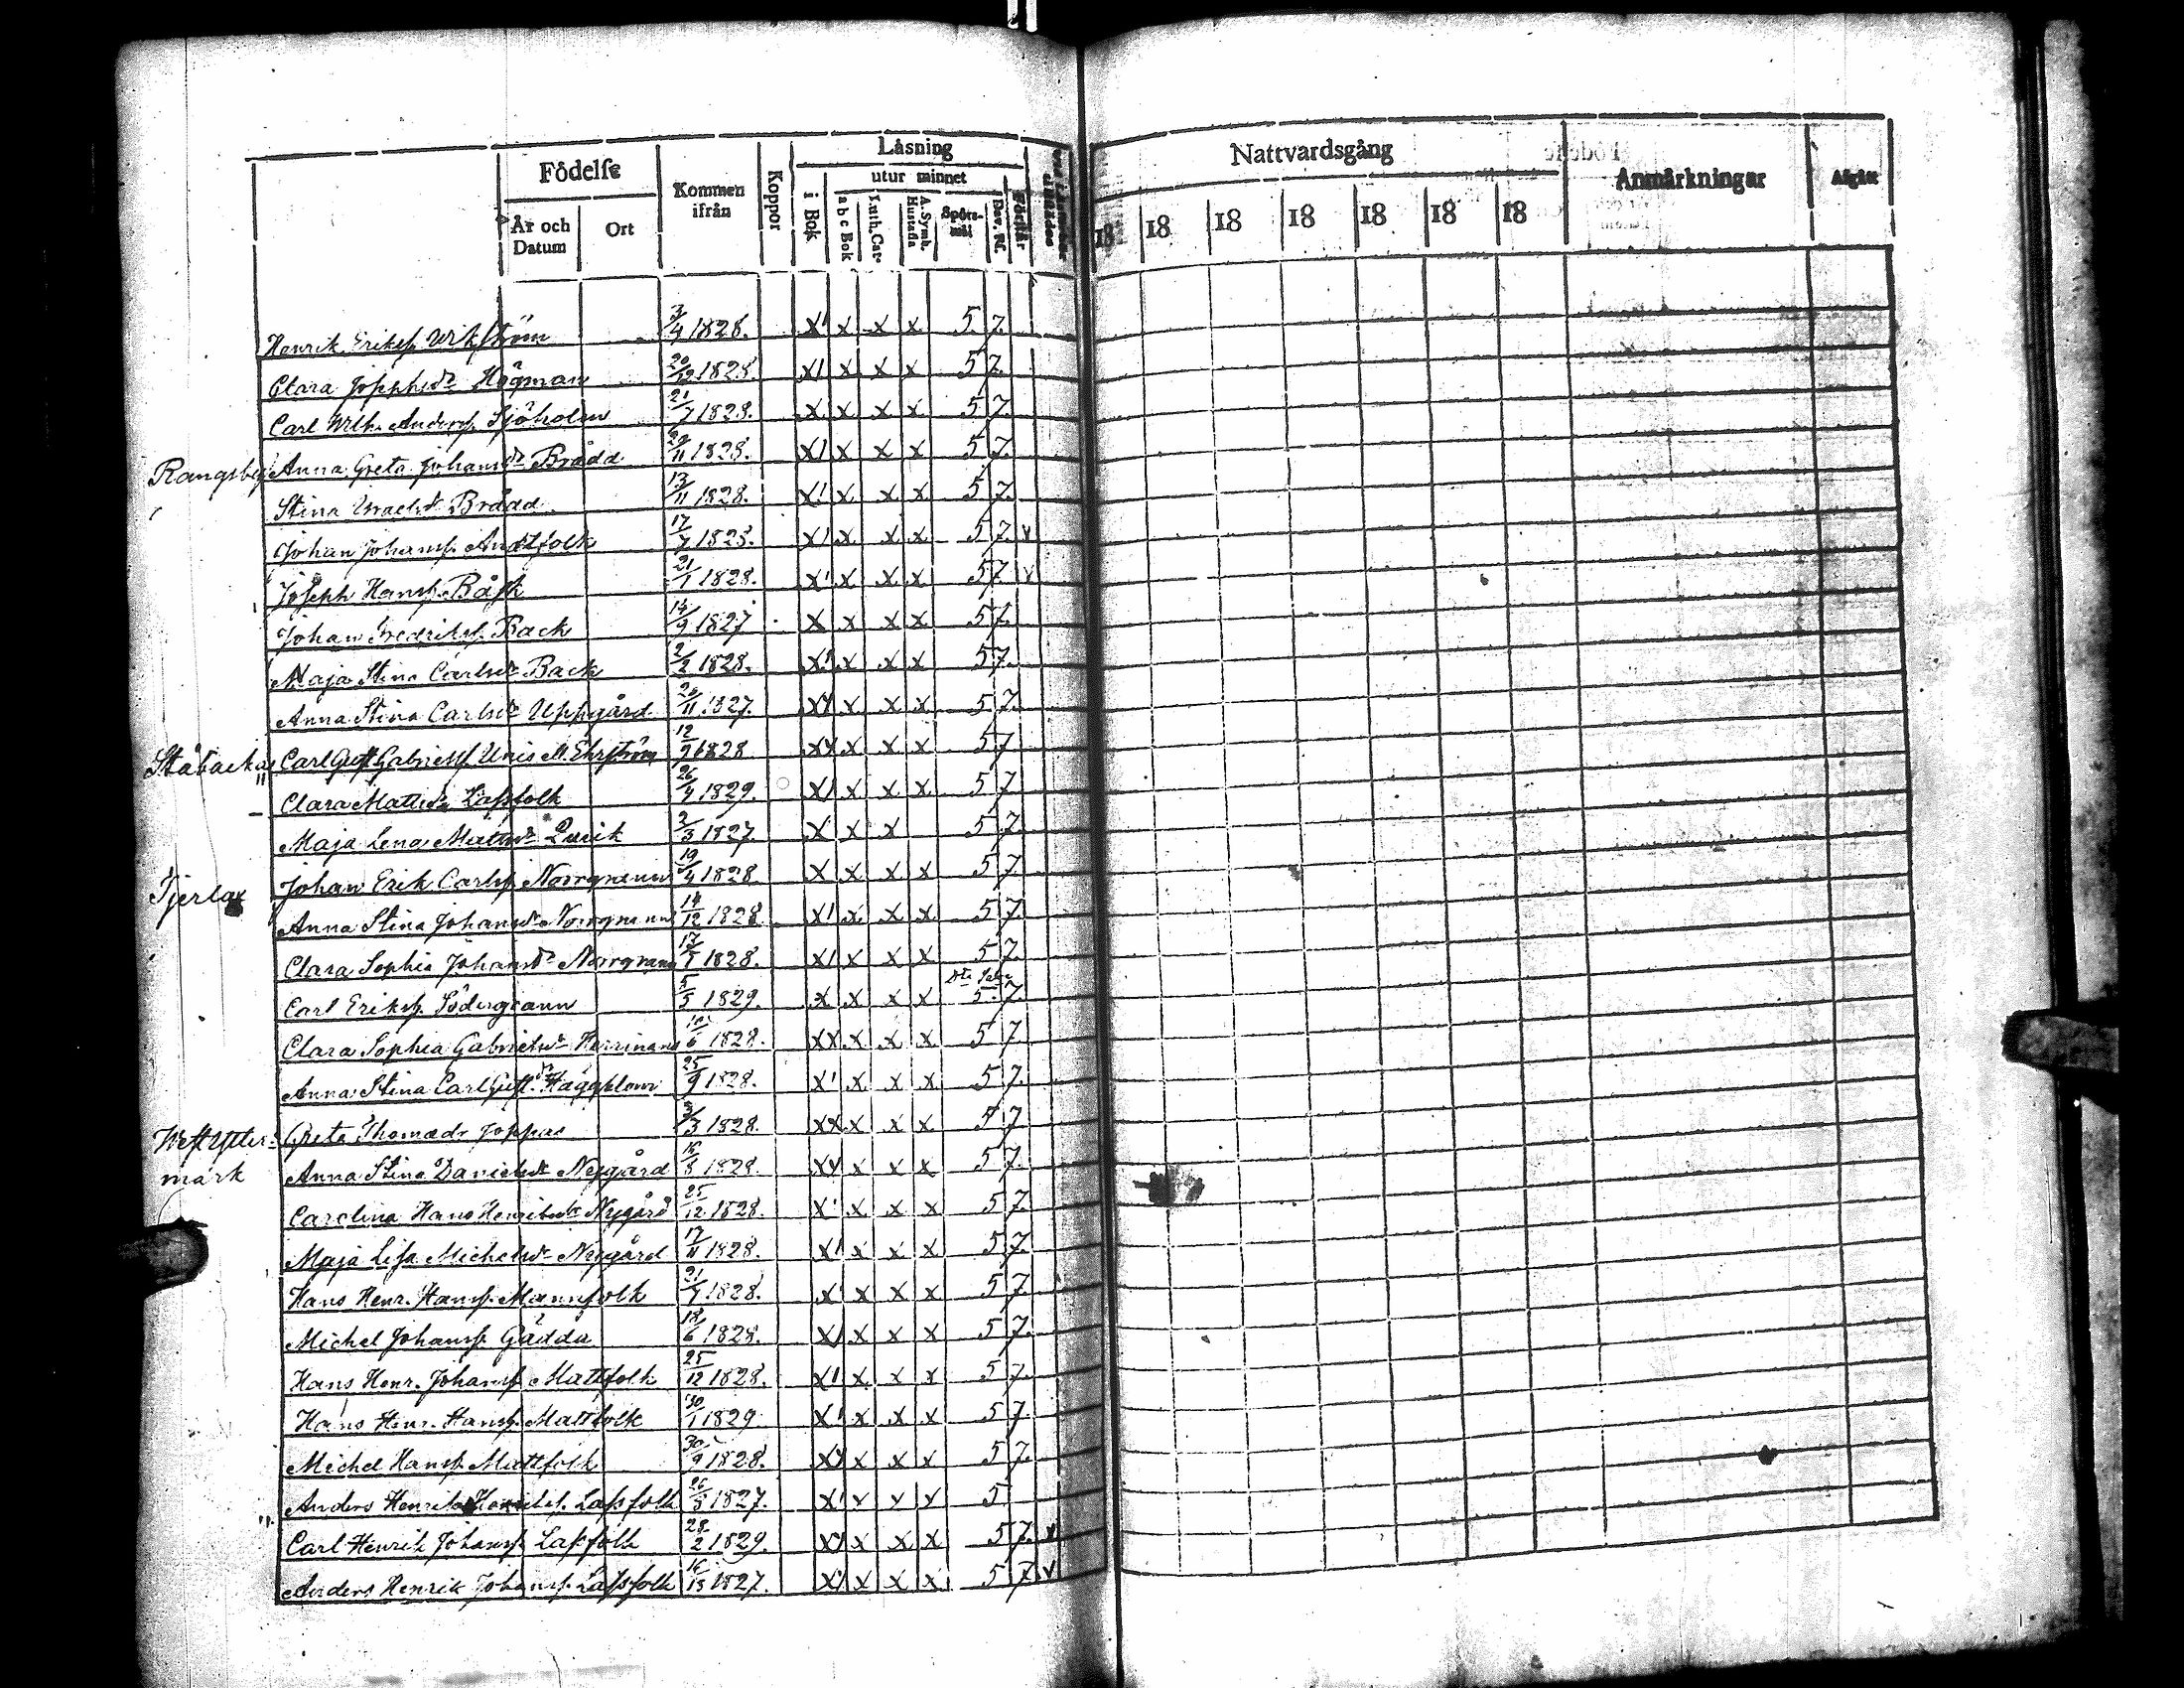 Födelse Kommen ifrån Koppor Läsning
utur minnet
År och Datum Ort i Bok a b c Bok Luth. Cat. A. Symb. Hustafla Spörs-mål Dav. Ps. Förstår
Nattvardsgång Anmärkningar Afgått
18 18 18 18 18 18 18
Henrik Erikss. Wikström 3/4 1828. x! x x x 5 7
Clara Josephsdr Högman 20/12 1828. x! x x x 5 7.
Carl Wilh. Anderss. Sjöholm 21/7 1828. x x x x 5 7
Rangsby Anna Greta Johansdr Brådd 29/11 1828. x! x x x 5 7.
Stina Israelsdr Brådd 13/11 1828. x! x x x 5 7.
Johan Johanss. Andtfolk 17/7 1828. x! x x x 5 7. v
Joseph Hanss. Båsk 21/1 1828. x! x x x 5 7 v
Johan Fredrikss. Back 14/9 1827 x x x x 5 7.
Maja Stina Carlsdr Back 2/2 1828. x! x x x 5 7.
Anna Stina Carlsdr Uppgård 20/11 1827. xx x x x 5 7.
Ståbackas Carl Gust. Gabrielss. Unis M. Ehrström 12/9 1828 xx x x x 5 7
" Clara Mattsdr Lassfolk 26/4 1829. x! x x x 5 7
Maja Lena Mattsdr Lurik 2/3 1827. x x x 5 7.
Tjerlax Johan Erik Carlss. Norrgrann 19/4 1828 x x x x 5 7.
Anna Stina Johansdr Norrgrann 14/12 1828. x! x x x 5 7.
Clara Sophia Johansdr Norrgrann 13/1 1828. x! x x x 5 7.
Carl Erikss. Södergrann 5/5 1829. x x x x 5. 7.
Clara Sophia Gabrielsdr Herrmans 10/6 1828. xx x x x 5 7
Anna Stina Carl Gust.dr Häggblom 25/9 1828. x! x x x 5 7.
West Ytter- Greta Thomasdr Joppas 3/3 1828. xx x x x 5 7
märk Anna Stina Danielsdr Nygård 16/8 1828. xx x x x 5 7.
Carolina Hans Henriksdr Nygård 25/12 1828. x! x x x 5 7.
Maja Lisa Michelsdr Nygård 17/11 1828. x! x x x 5 7.
Hans Henr. Hanss. Mannfolk 21/7 1828. x! x x x 5 7
Michel Johanss. Gädda 18/6 1828. x! x x x 5 7.
Hans Henr. Johanss. Mattfolk 25/12 1828. x! x x x 5 7.
Hans Henr. Hanss. Mattfolk 30/1 1829 x! x x x 5 7.
Michel Hanss. Mattfolk 30/9 1828. xx x x x 5 7.
Anders Henrik Lassfolk 26/3 1827. x! x x x 5
" Carl Henrik Johanss. Lassfolk 28/2 1829. xx x x x 5 7. x
Anders Henrik Johanss. Lassfolk 1827. x! x x x 5 7 v